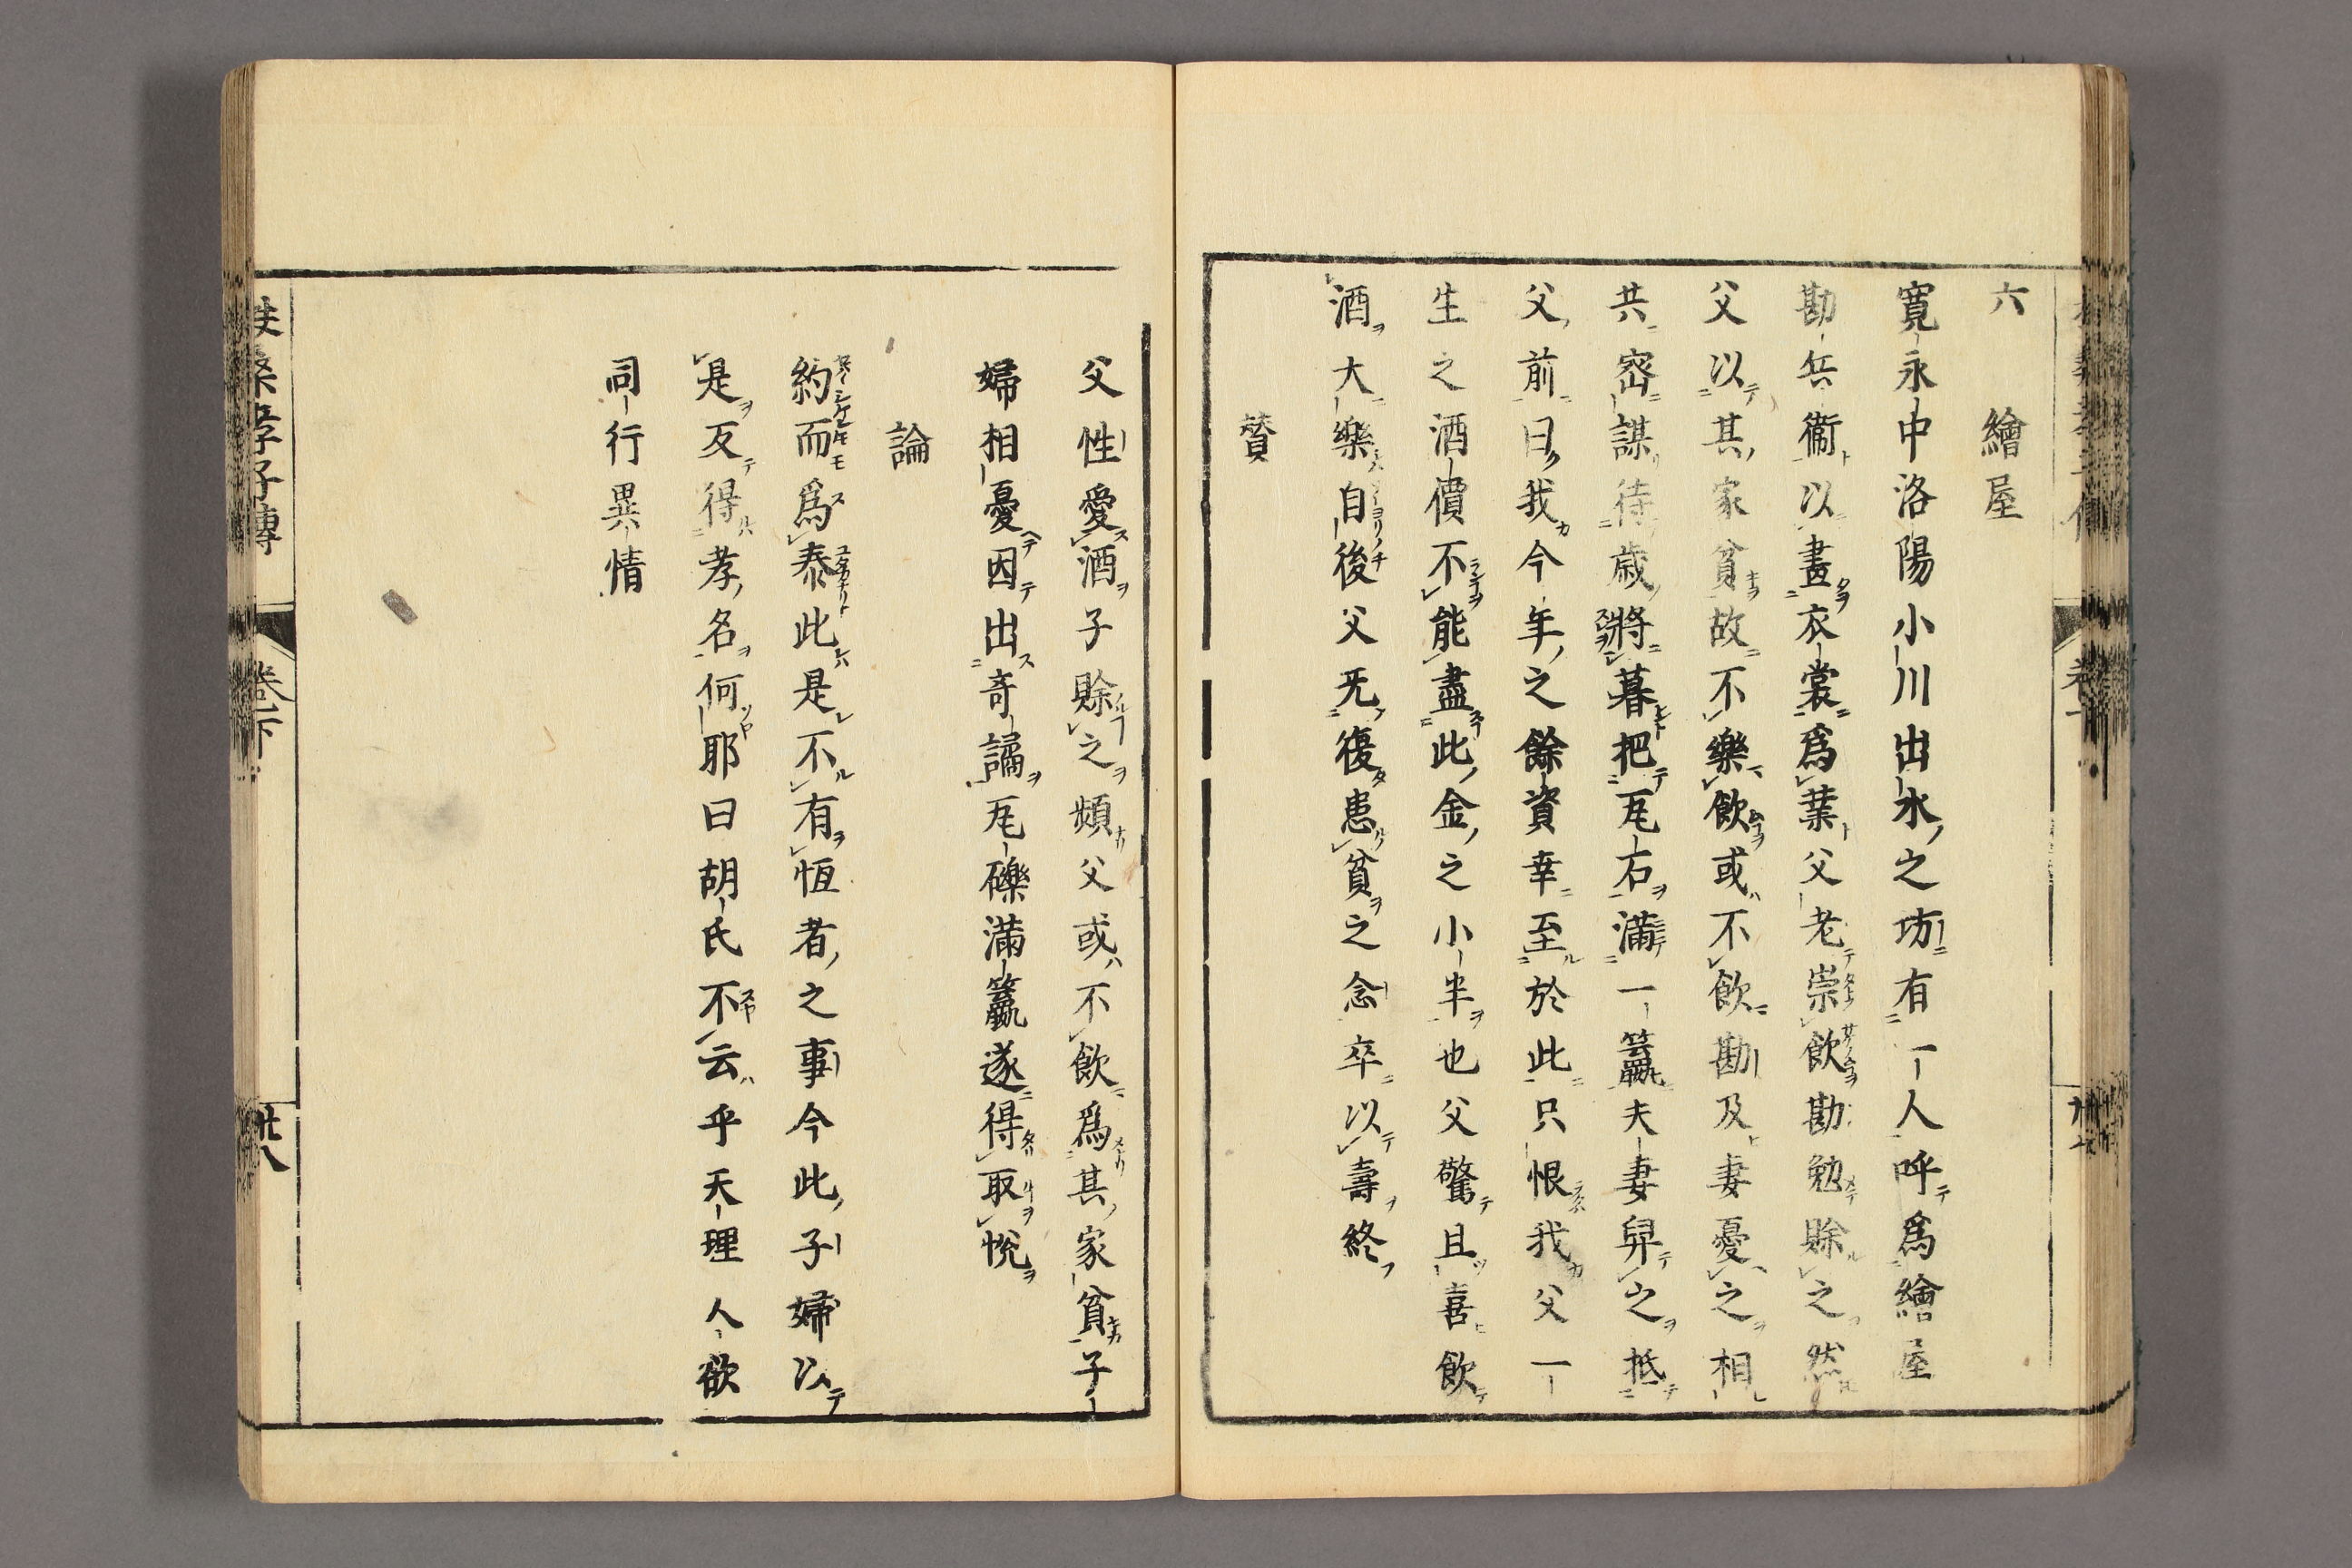 六　繪屋
寛永中洛陽小川出水之坊有一人呼爲繪屋
勘兵衞以畫衣裳爲業父老崇飲勘勉賒之然
父以其家貧故不樂飲或不飲勘及妻憂之相
共密謀待歳將暮把瓦石滿一籯夫妻舁之抵
父前曰我今年之餘資幸至於此只恨我父一
生之酒價不能盡此金之小半也父驚且喜飲
酒大樂自後父旡復患貧之念卒以壽終
賛
父性愛酒子賒之頻父或不飲爲其家貧子
婦相憂因出奇譎瓦礫滿籯遂得取悅
論
約而爲泰此是不有恒者之事今此子婦以
是反得孝名何耶曰胡氏不云乎天理人欲
同行異情
扶桑孝子傳　卷下　廿八